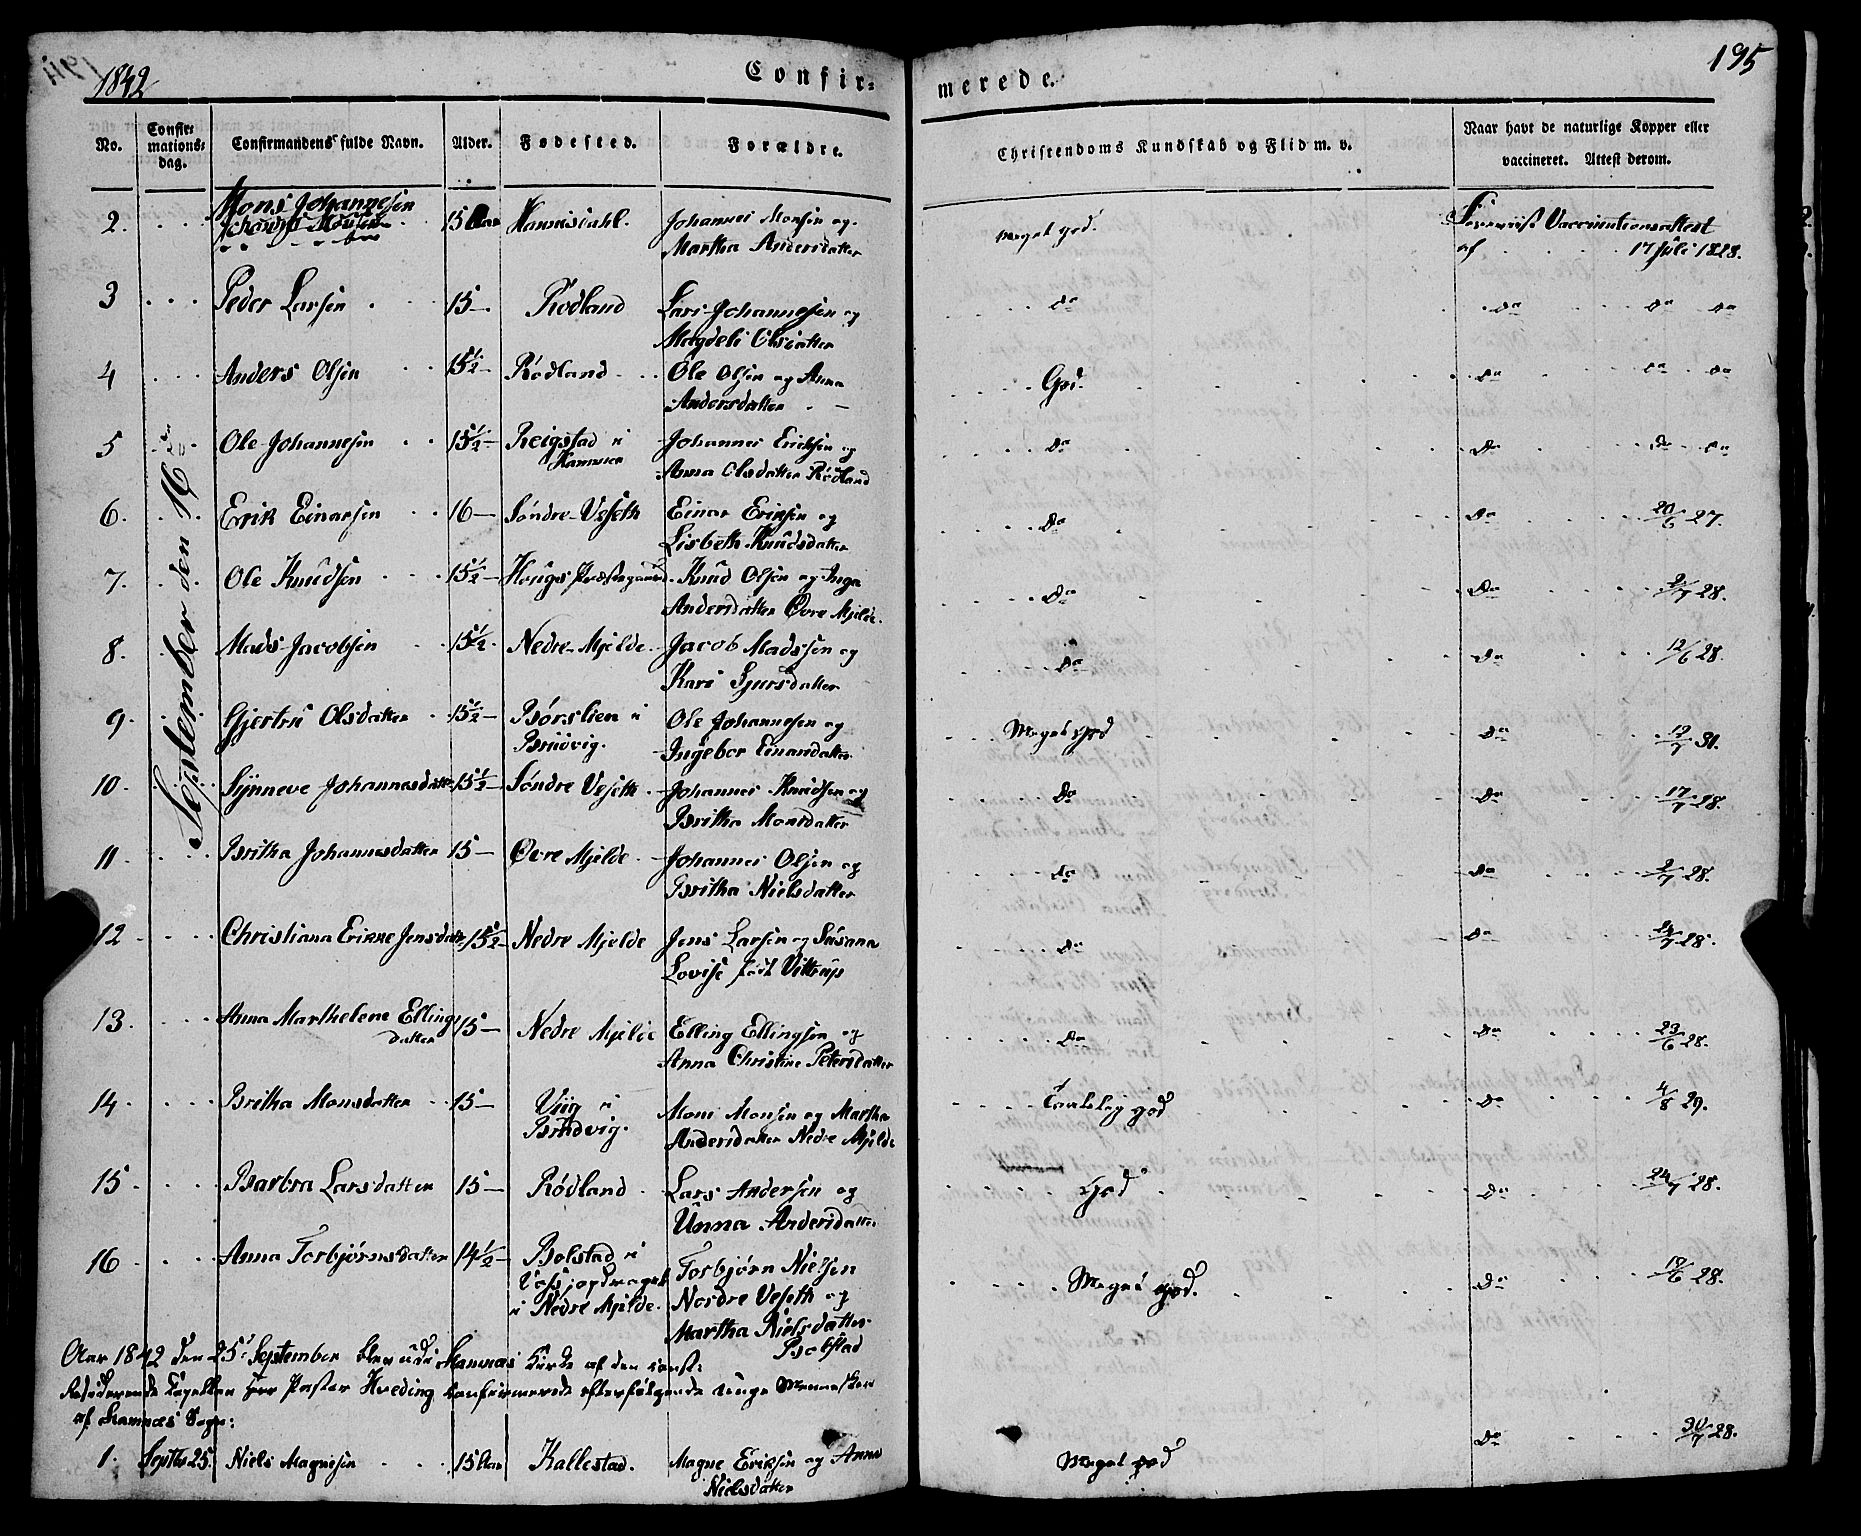 1842
Confir-
merede.
195
No.
Confir-
mations-
dag.
Confirmandens fulde Navn.
Alder.
Fødested.
Forældre.
Christendoms Kundskab og Flid m. v.
Naar havt de naturlige Kopper eller
vaccineret. Attest derom.
September den 16de
2. Mons Johannesen 15 Aar Johannes Monsen og Meget god. Foreviist Vaccinationsattest
Martha Andersdatter af 17 Juli 1828.
3 Peder Larsen 15 Rødland Lars Johannesen og do do do do
Magdeli Olsdatter
4 Anders Olsen 15½ Rødland Ole Olsen og Anna God. do do do
Andersdatter
5 Ole Johannesen 15½ Reigstad i Johannes Eriksen og do do do do
Hammer Anna Olsdatter Rødland
6. Erik Einarsen 16 Søndre Veseth Einar Eriksen og do do 20/6 27.
Lisbeth Knudsdatter
7. Ole Knudsen 15½ Houges Præstegaard Knud Olsen og Inga do do 2/7 28.
Andersdatter Øvre Mjelde.
8. Mads Jacobsen 15½ Nedre Mjelde Jacob Madssen og do do 12/6 28.
Kari Sjursdatter
9. Gjertru Olsdatter 15½ Børslien i Ole Johannesen og Meget god do 12/7 31.
Bruvig. Ingebor Einarsdatter
10. Synneve Johannesdatter 15½ Søndre Veseth Johannes Knudsen og do do 17/7 28.
Britha Monsdatter
11 Britha Johannesdatter 15 Øvre Mjelde Johannes Olsen og do do 2/7 28.
Britha Nielsdatter
12 Christiana Erikke Jensdatter 15½ Nedre Mjelde Jens Larsen og Susana do do 24/7 28.
Lovise født Vittrup
13. Anna Marthelene Ellings 15 Nedre Mjelde Elling Ellingsen og do do 23/6 28.
datter Anna Christine Petersdatter
14. Britha Monsdatter 15 Viig i Mons Monsen og Martha Taalelig god do 4/8 29.
Brudvig. Andersdatter Nedre Mjelde
15 Barbra Larsdatter 15 Rødland Lars Andersen og God do 24/7 28.
Unna Andersdatter
16 Anna Torbjørnsdatter 14½ Bolstad i Torbjørn Nielsen Meget god. do 12/6 28.
Voss, opdraget Nordre Veseth og
i Nedre Mjelde. Martha Nielsdatter
Bolstad
Aar 1842 den 25de September blev udi Stamnæs Kirke af den const:
Residerende Capellan Herr Pastor Hveding confirmerede efterfølgende unge Mennesker
af Stamnæs Sogn:
1. Septbr 25. Niels Magnesen 15 Aar Kallestad. Magne Eriksen og Anna Meget god do 30/7 28.
Nielsdatter